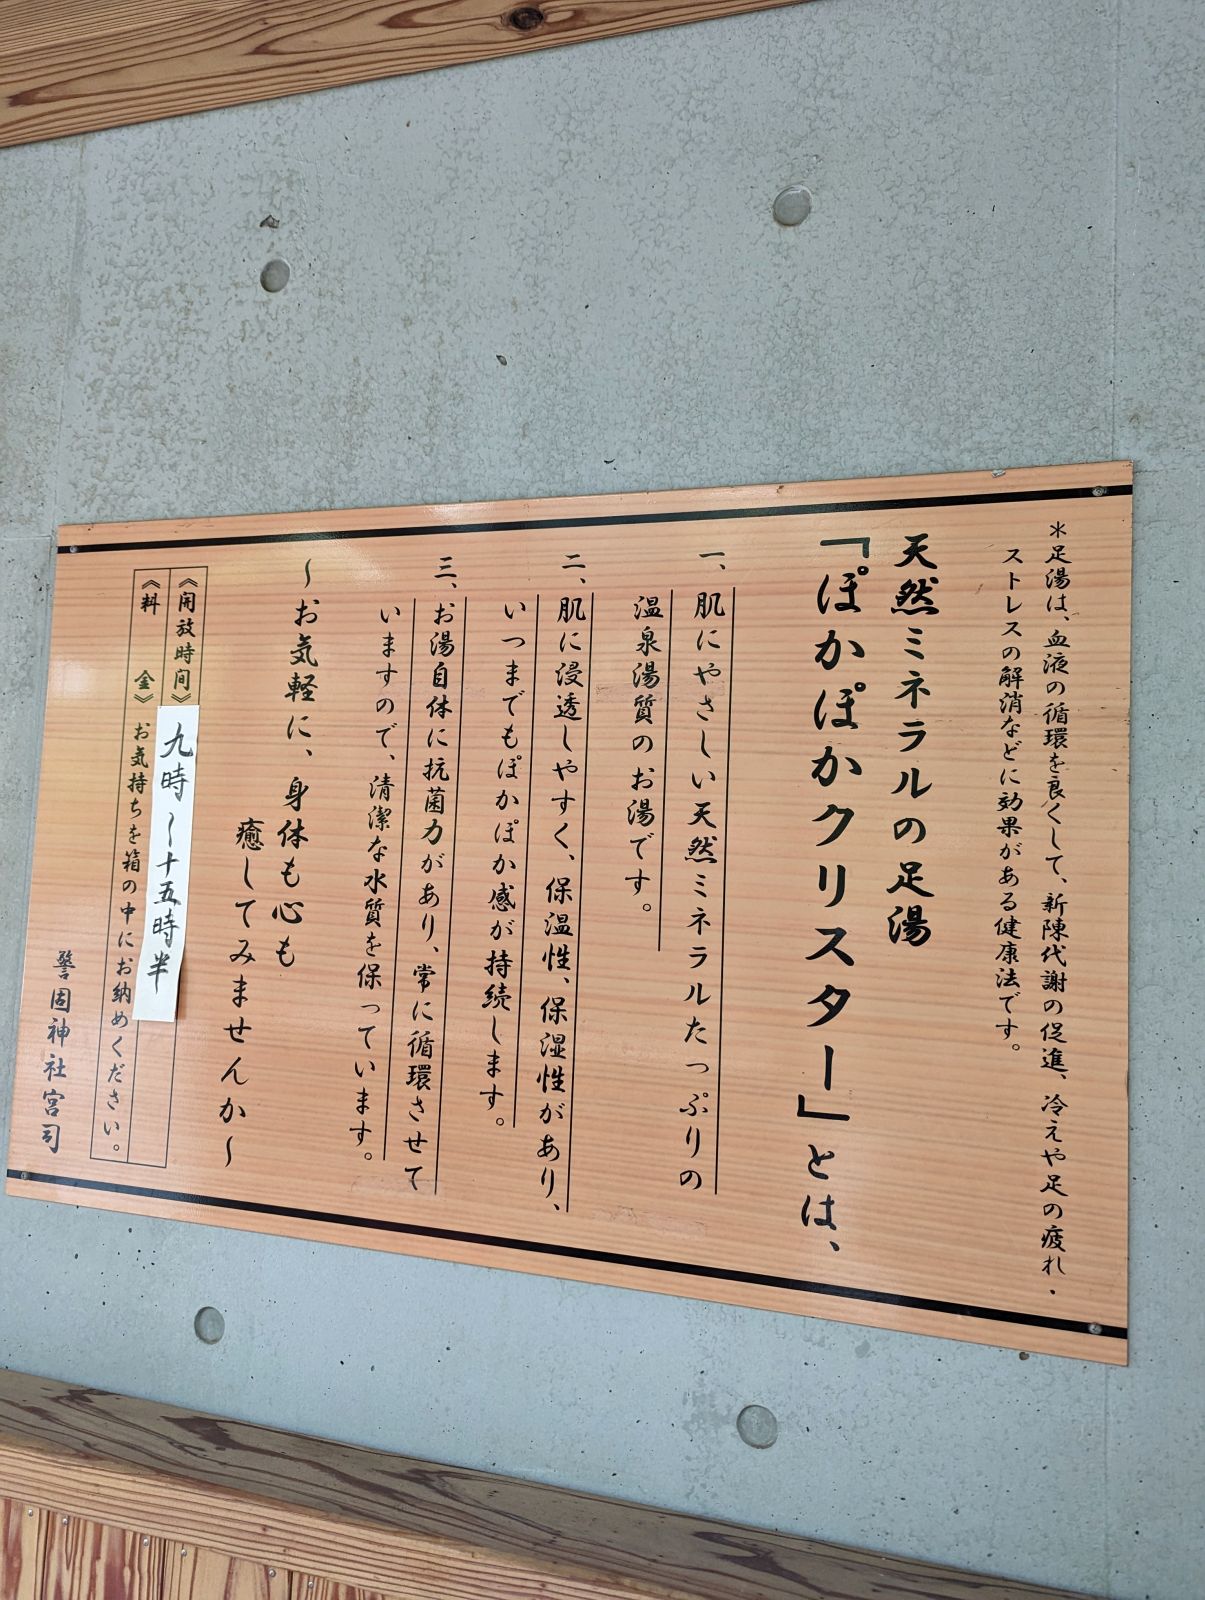 ＊足湯は、血液の循環を良くして、新陳代謝の促進、冷えや足の疲れ・
ストレスの解消などに効果がある健康法です。
天然ミネラルの足湯
「ぽかぽかクリスター」とは、
一、肌にやさしい天然ミネラルたっぷりの
温泉湯質のお湯です。
二、肌に浸透しやすく、保温性、保湿性があり、
いつまでもぽかぽか感が持続します。
三、お湯自体に抗菌力があり、常に循環させて
いますので、清潔な水質を保っています。
〜お気軽に、身体も心も
癒してみませんか〜
《開放時間》九時〜十五時半
《料　金》お気持ちを箱の中にお納めください。
警固神社宮司